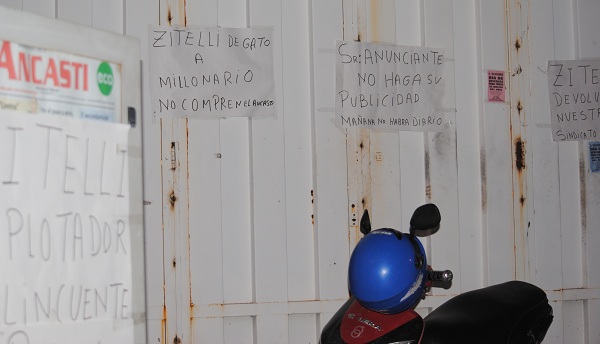 ANCASTI
eco
ITELLI
PLOTADOR
LINCUENTE
ZITELLI DE GATO
A
MILLONARIO
NO COMPREN EL ANCASTI
Sr: ANUNCIANTE
NO HAGA SU
PUBLICIDAD
MAÑANA NO HABRA DIARIO
ZITE
DEVOLV
NUESTRA
SINDICATO